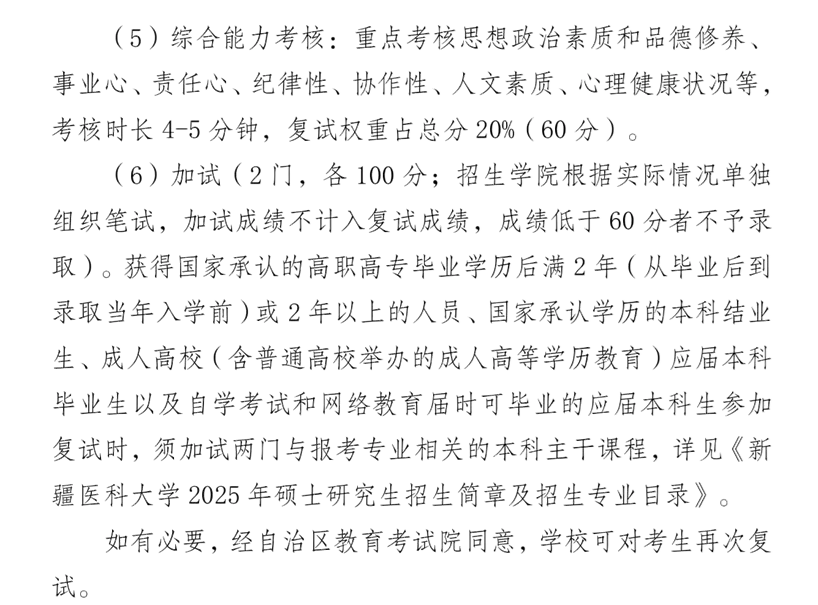 （5）综合能力考核：重点考核思想政治素质和品德修养、
事业心、责任心、纪律性、协作性、人文素质、心理健康状况等，
考核时长 4-5 分钟，复试权重占总分 20%（60 分）。
（6）加试（2 门，各 100 分；招生学院根据实际情况单独
组织笔试，加试成绩不计入复试成绩，成绩低于 60 分者不予录
取）。获得国家承认的高职高专毕业学历后满 2 年（从毕业后到
录取当年入学前）或 2 年以上的人员、国家承认学历的本科结业
生、成人高校（含普通高校举办的成人高等学历教育）应届本科
毕业生以及自学考试和网络教育届时可毕业的应届本科生参加
复试时，须加试两门与报考专业相关的本科主干课程，详见《新
疆医科大学 2025 年硕士研究生招生简章及招生专业目录》。
如有必要，经自治区教育考试院同意，学校可对考生再次复
试。